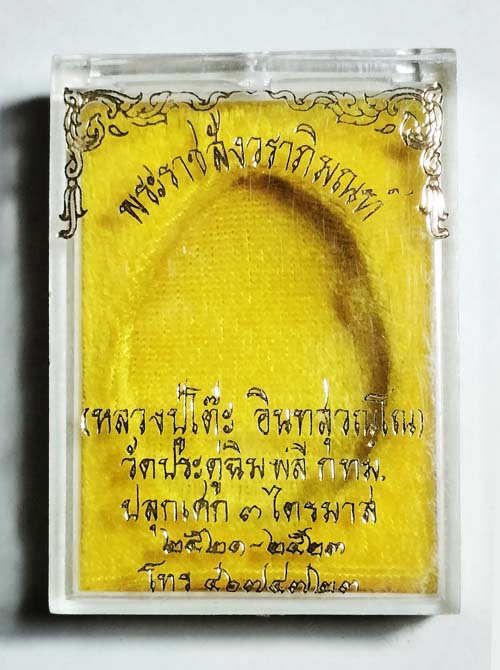 พระราชสังวราภิมณฑ์
(หลวงปู่โต๊ะ อินทสุวณฺโณ)
วัดประดู่ฉิมพลี กทม.
ปลุกเศก ๓ ไตรมาส
๒๕๒๑-๒๕๒๓
โทร ๔๖๗๔๗๒๓